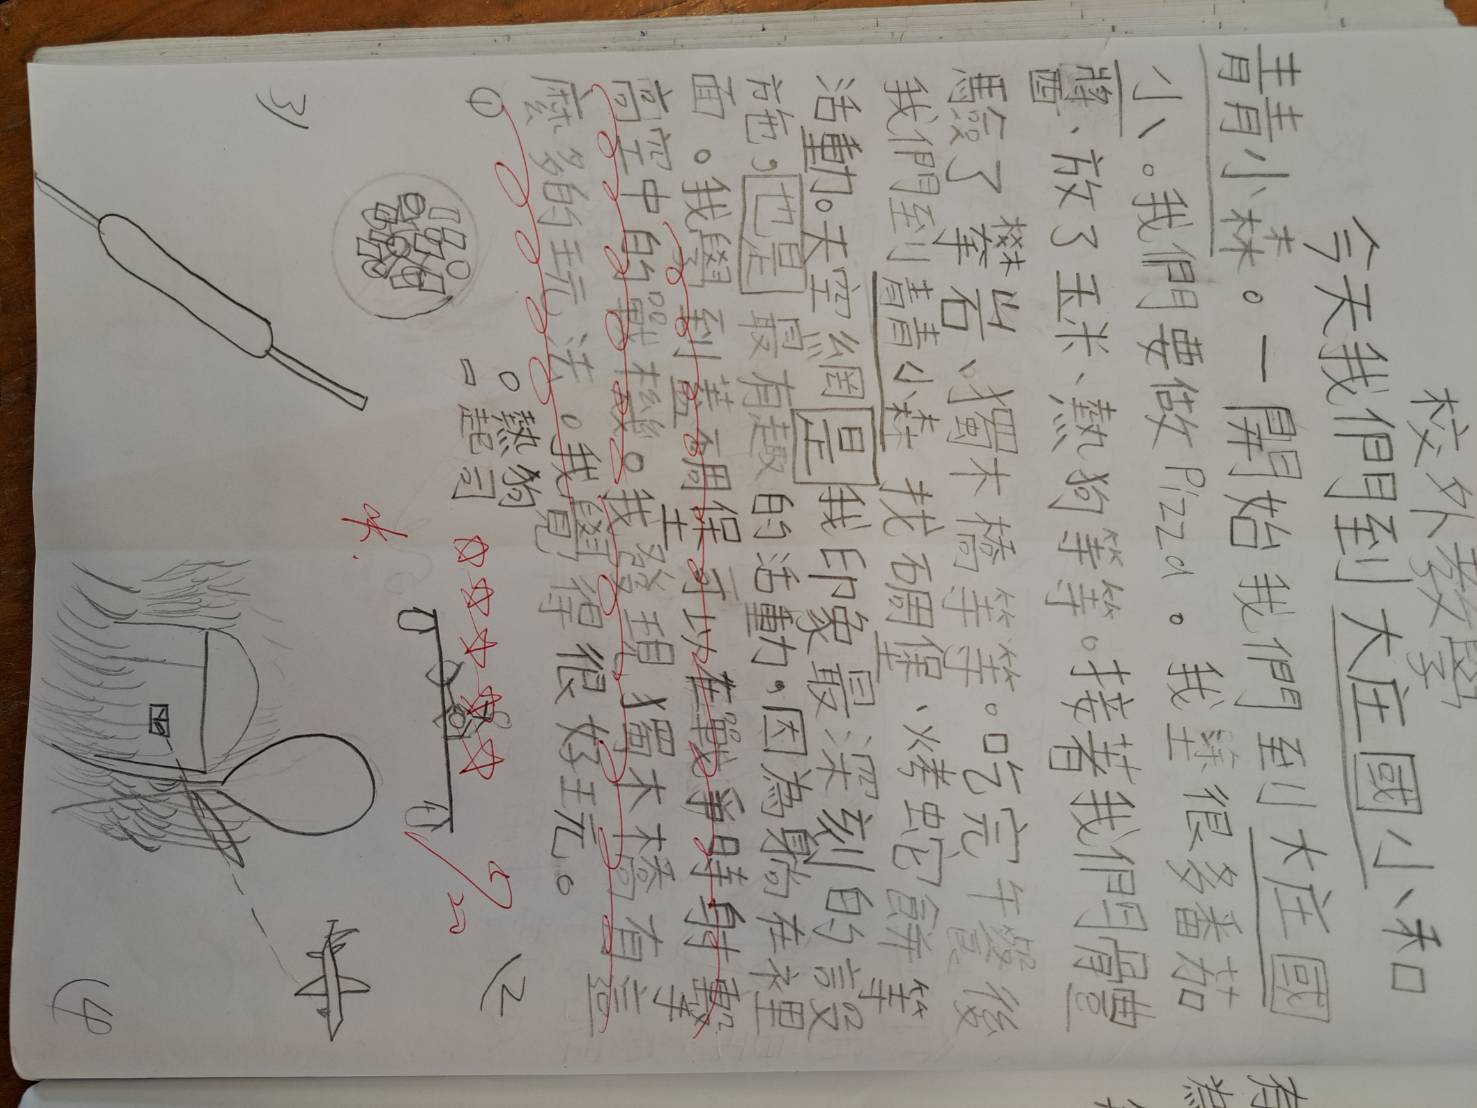 校外教學
今天我們到大庄國小和
青青小森。一開始我們到大庄國
小。我們要做Pizza。我塗很多番茄
醬、放了玉米、熱狗等等。接著我們體
驗了攀岩、獨木橋等等。吃完午餐後
我們到青青小森找碉堡、烤蛇餅等
活動。天空繩網是我印象最深刻的設
施,也是最有趣的活動,因為躺在裡
面。我學到蓋碉堡可以在戰爭時射擊
高空中的戰機。我發現獨木橋有這
麼多的玩法。我覺得很好玩。
①
。熱狗
一起司
2)
3)
(4)